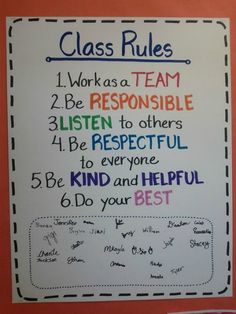 Class Rules
1. Work as a TEAM
2. Be RESPONSIBLE
3. LISTEN to others
4. Be RESPECTFUL
to everyone
5. Be KIND and HELPFUL
6. Do your BEST
Jennifer
William
Mikayla
Stacey
Jackson
Ethan
Tyler